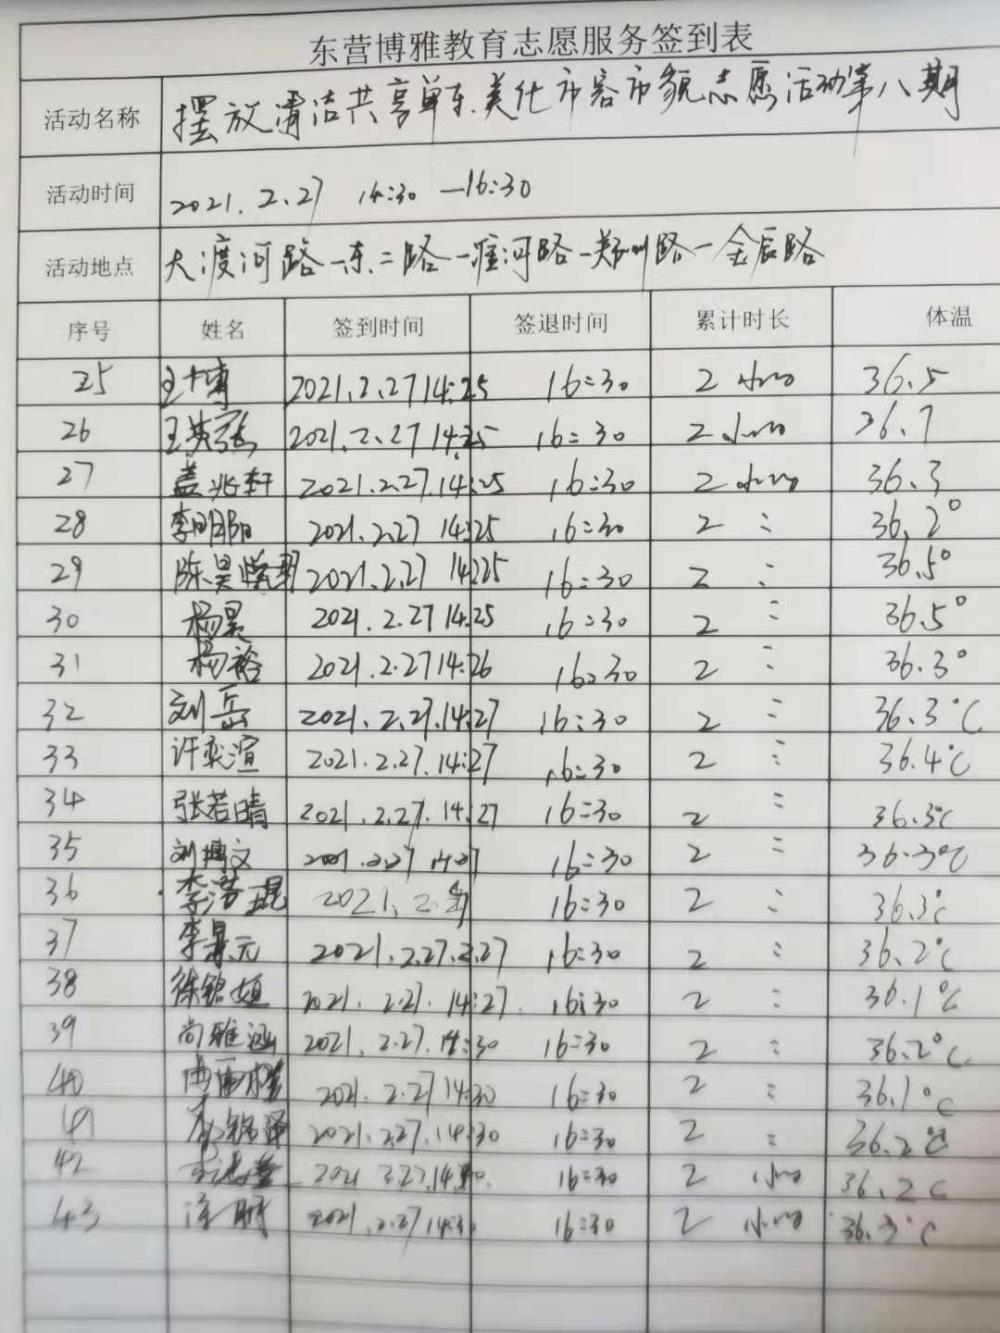 东营博雅教育志愿服务签到表
活动名称 摆放清洁共享单车.美化市容市貌志愿活动第八期
活动时间 2021.2.27 14:30—16:30
活动地点 大渡河路-东二路-淮河路-郑州路-金辰路
序号 姓名 签到时间 签退时间 累计时长 体温
25 2021.2.27 14:25 16:30 2小时 36.5
26 2021.2.27 14:25 16:30 2小时 36.7
27 盖兆轩 2021.2.27.14:25 16:30 2小时 36.3
28 李明阳 2021.2.27 14:25 16:30 2 : 36.2°
29 陈昊 2021.2.27 14:25 16:30 2 : 36.5°
30 杨昊 2021.2.27 14:25 16:30 2 : 36.5°
31 杨裕 2021.2.27 14:26 16:30 2 : 36.3°
32 刘岳 2021.2.27.14:27 16:30 2 : 36.3°C
33 许奕渲 2021.2.27.14:27 16:30 2 : 36.4°C
34 张若晴 2021.2.27.14:27 16:30 2 : 36.3°C
35 刘博文 2021.2.27 14:27 16:30 2 : 36.3°C
36 李浩琨 2021.2. 16:30 2 : 36.3°C
37 李景元 2021.2.27. 16:30 2 : 36.2°C
38 徐铭 2021.2.27.14:27. 16:30 2 : 36.1°C
39 尚雅涵 2021.2.27.14:30 16:30 2 : 36.2°C
40 2021.2.27 14:30 16:30 2 : 36.1°C
41 2021.2.27.14:30 16:30 2 : 36.2°C
42 2021 16:30 2 小时 36.2C
43 2021.2.27 14:30 16:30 2 小时 36.3°C